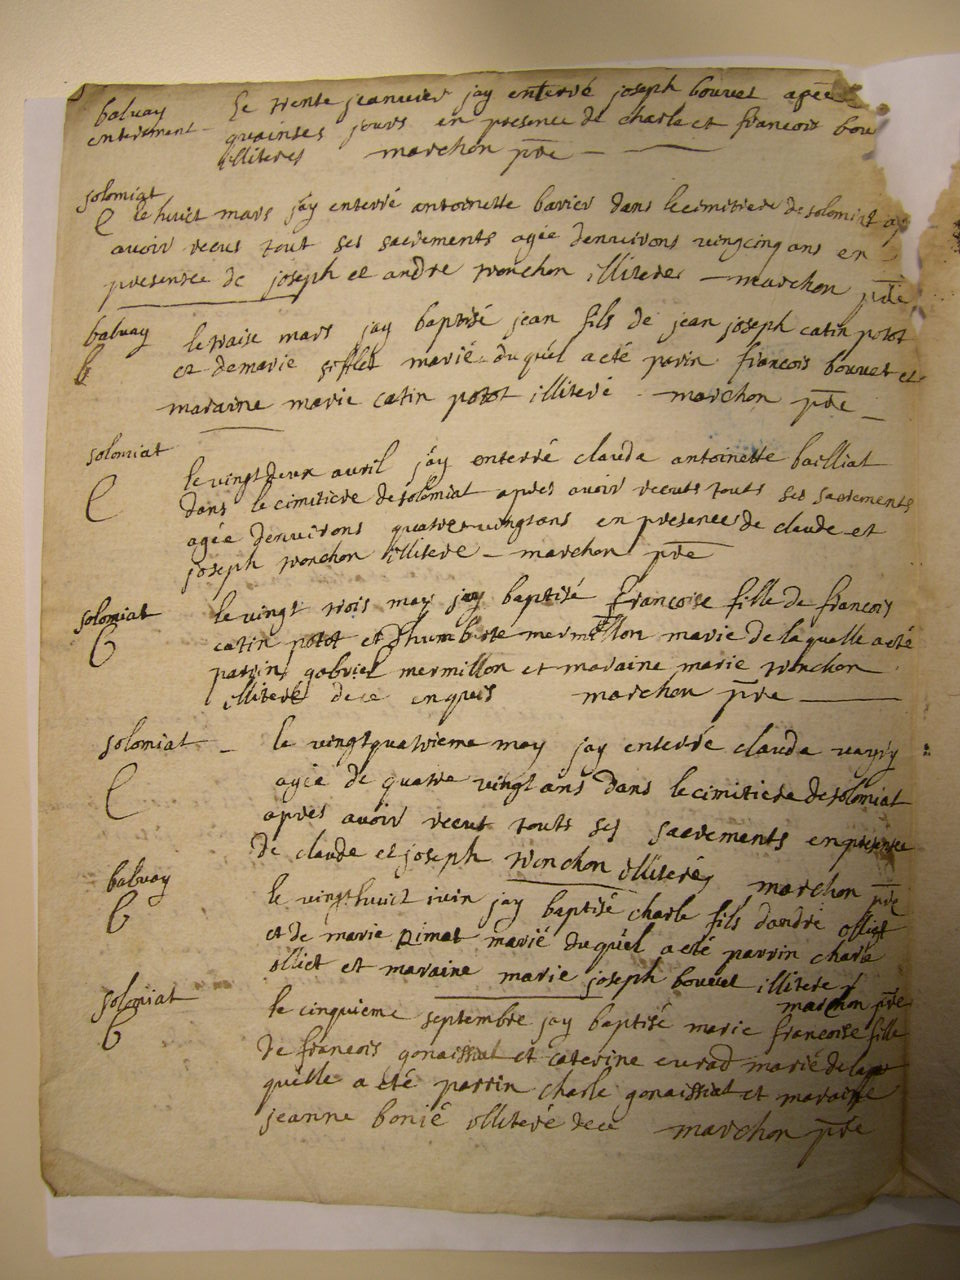 balvay
enterement
le trente jeanvier jay enterré joseph bouvet ageé
quainses jours en presence de charle et francois bou
illiteres marchon p̅r̅e̅
solomiat
le huict mars jay enterré antoinette barier dans le cimitiere de solomiat ap
avoir receus tout ses sacrements agée denvirons vingcinq ans en
presence de joseph et andre tronchon illiteres marchon p̅r̅e̅
balvay
b
le traise mars jay baptisé jean fils de jean joseph catin potot
et de marie sifflet marié du quel a eté parin francois bouvet et
maraine marie catin potot illiteré marchon p̅r̅e̅
solomiat
le vingtdeux avril jay enterré clauda antoinette bailliat
dans le cimitiere de solomiat apres avoir receuts touts ses sacrements
agée denvirons quatrevingtans en presence de claude et
joseph tronchon illiteré marchon p̅r̅e̅
solomiat
le vingt trois may jay baptisé francoise fille de francois
catin potot et d'humberte mermillon marié de laquelle a eté
parrin gabriel mermillon et maraine marie tronchon
illiteré de ce enquis marchon p̅r̅e̅
solomiat
le vingtquatrieme may jay enterré clauda
agée de quatre vingt ans dans le cimitiere de solomiat
apres avoir receut touts ses sacrements en presence
de claude et joseph tronchon illiteré marchon p̅r̅e̅
balvay
le vingthuict iuin jay baptisé charle fils dandré olliet
et de marie pimat marié du quel a eté parrin charle
olliet et maraine marie joseph bouvet illitere
marchon p̅r̅e̅
solomiat
le cinquieme septembre jay baptisé marie francoise fille
de francois gonaissiat et caterine eurad marié de la
quelle a eté parrin charle gonaissiat et maraine
jeanne bonié illiteré de ce marchon p̅r̅e̅